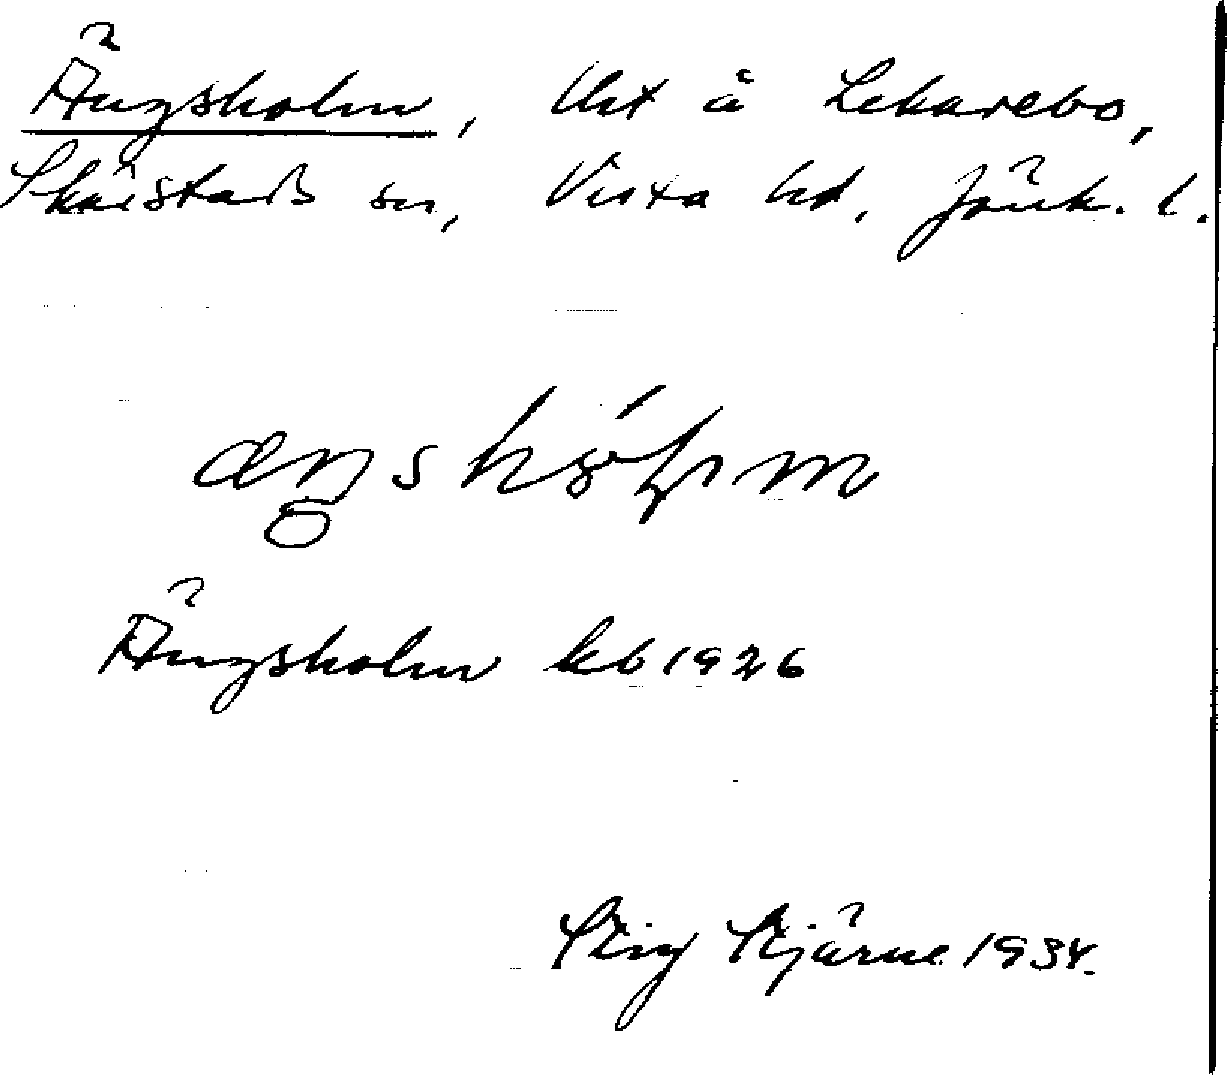 Ängsholm, lht å Lekarebo,
Skärstads sn, Vista hd, Jönk. l.
Ängsholm kb 1926
Stig Stjärne 1934.